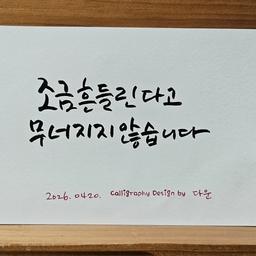 조금 흔들린다고
무너지지 않습니다
2026. 04.20. Calligraphy Design by 다운